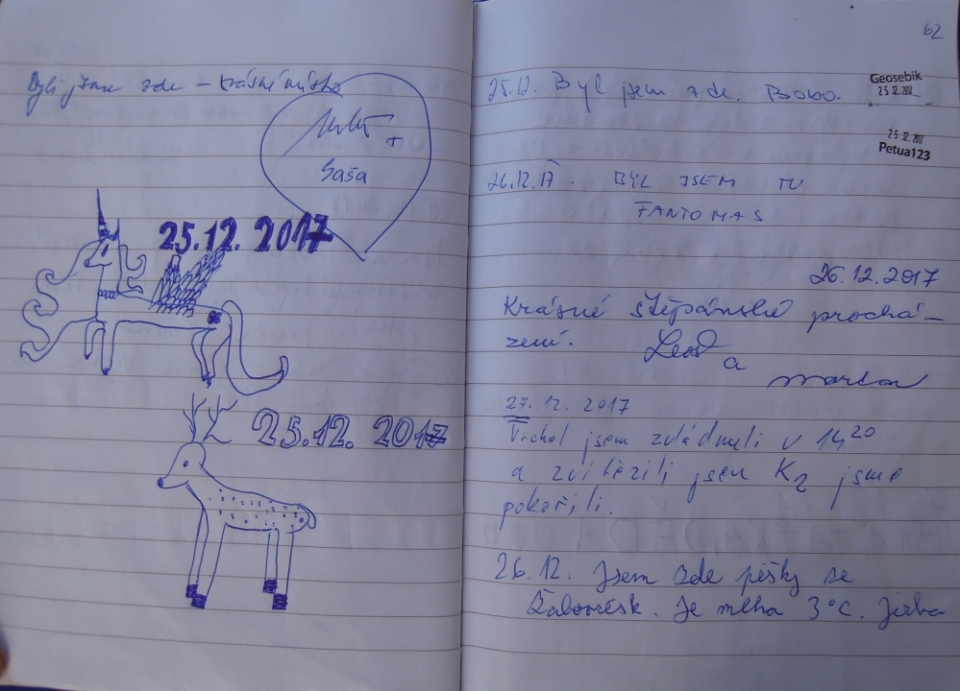 Byli jsme zde – krásné místo
+
Saša
25.12. 2017
25.12. 2017
62
25.12. Byl jsem zde. Bobo.
Geosebik
25.12.2017
25.12.2017
Petua123
26.12.17. BYL JSEM TU
FANTOMAS
26.12.2017
Krásné štěpánské prochá–
zení.
a
27.12.2017
Vrchol jsem zvládnuli v 14 20
a zvítězili jsem K2 jsme
pokořili.
26.12. Jsem zde pěšky ze
Je mlha 3°C. Jirka